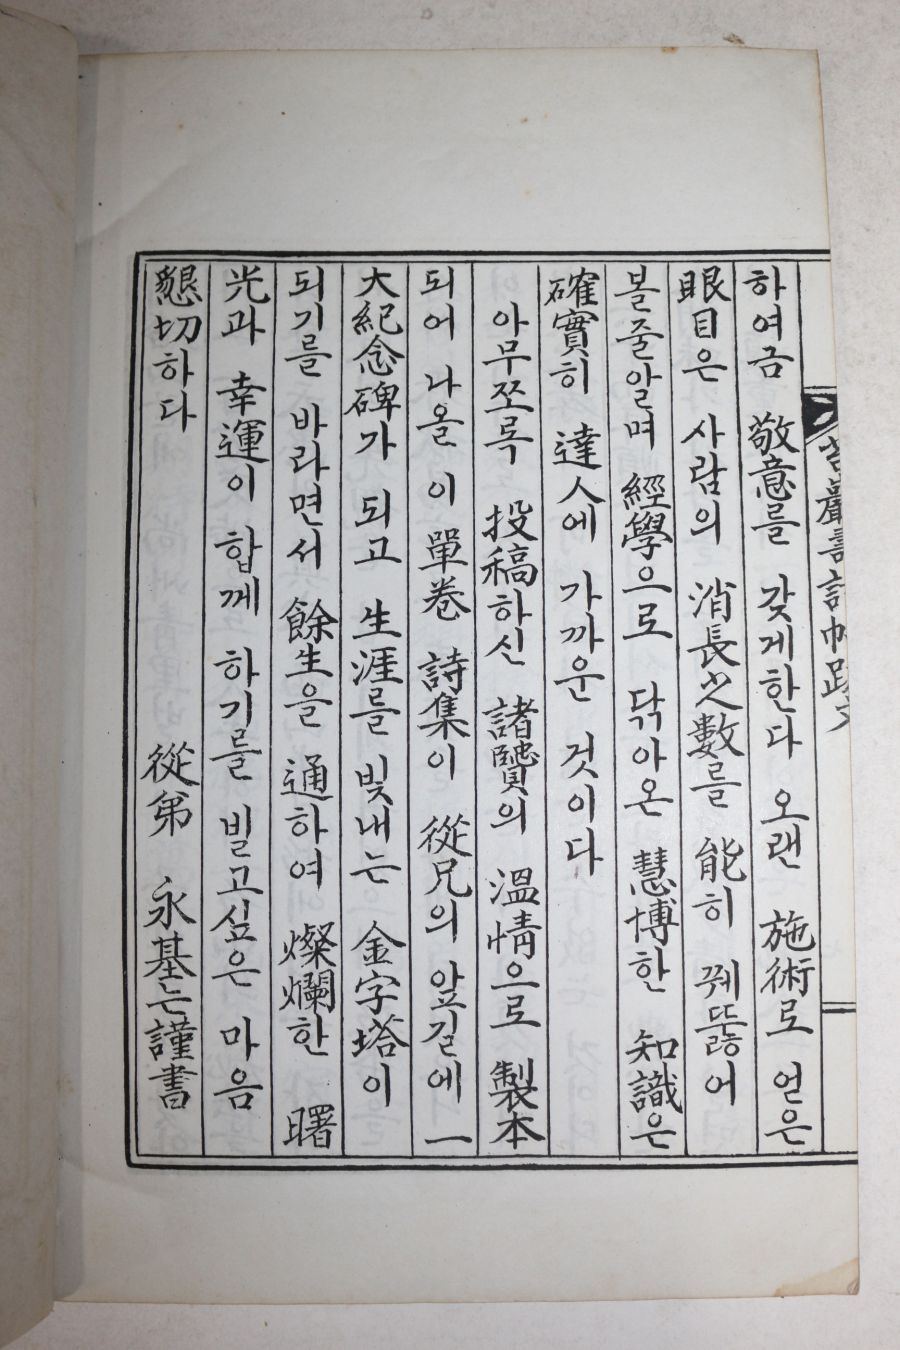 巖壽詩帖跋文
하여금 敬意를 갖게한다 오랜 施術로 얻은
眼目은 사람의 消長之數를 能히 꿰뚫어
볼줄알며 經學으로 닦아온 慧博한 知識은
確實히 達人에 가까운 것이다
아무쪼록 投稿하신 諸賢의 溫情으로 製本
되어 나올 이 單卷 詩集이 從兄의 앞길에 一
大紀念碑가 되고 生涯를 빛내는 金字塔이
되기를 바라면서 餘生을 通하여 燦爛한 曙
光과 幸運이 합께 하기를 빌고싶은 마음
懇切하다 從弟 永基는 謹書